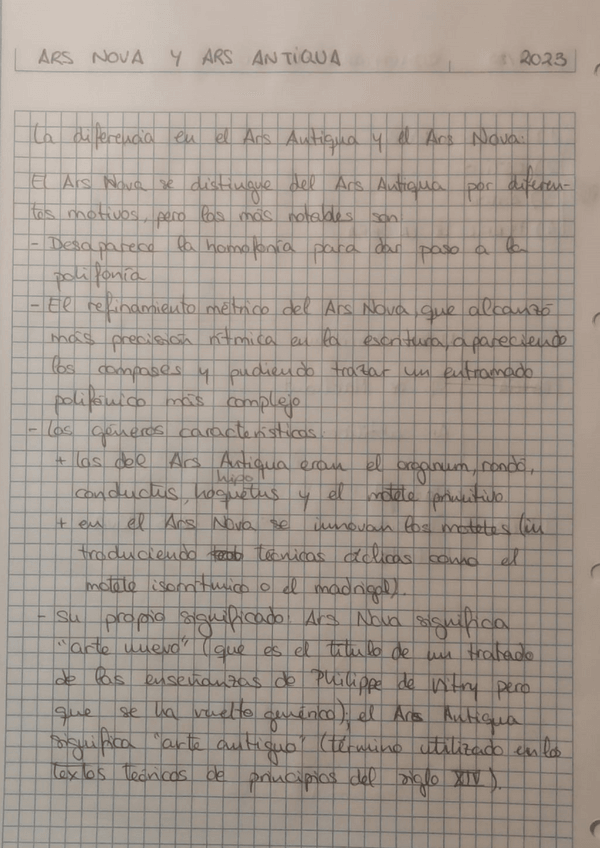 ARS NOVA Y ARS ANTIQUA 2023
La diferencia en el Ars Antiqua y el Ars Nova:
El Ars Nova se distingue del Ars Antiqua por diferen-
tes motivos, pero los más notables son:
- Desaparece la homofonía para dar paso a la
polifonía
- El refinamiento métrico del Ars Nova, que alcanzó
más precisión rítmica en la escritura, apareciendo
los compases y pudiendo trazar un entramado
polifónico más complejo
- Los géneros característicos:
+ los del Ars Antiqua eran el organum, rondó,
conductus, hoquetus y el motete primitivo
+ en el Ars Nova se innovan los motetes (in
traduciendo técnicas cíclicas como el
motete isorrítmico o el madrigal).
- Su propio significado: Ars Nova significa
"arte nuevo" (que es el título de un tratado
de las enseñanzas de Philippe de Vitry pero
que se ha vuelto genérico); el Ars Antiqua
significa "arte antiguo" (término utilizado en los
textos teóricos de principios del siglo XIV).